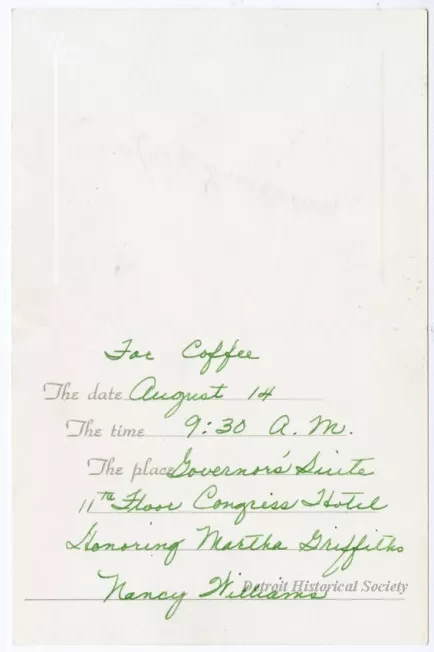 For Coffee
The date August 14
The time 9:30 A.M.
The place Governors' Suite
11th Floor Congress Hotel
Honoring Martha Griffiths
Nancy Williams
Detroit Historical Society